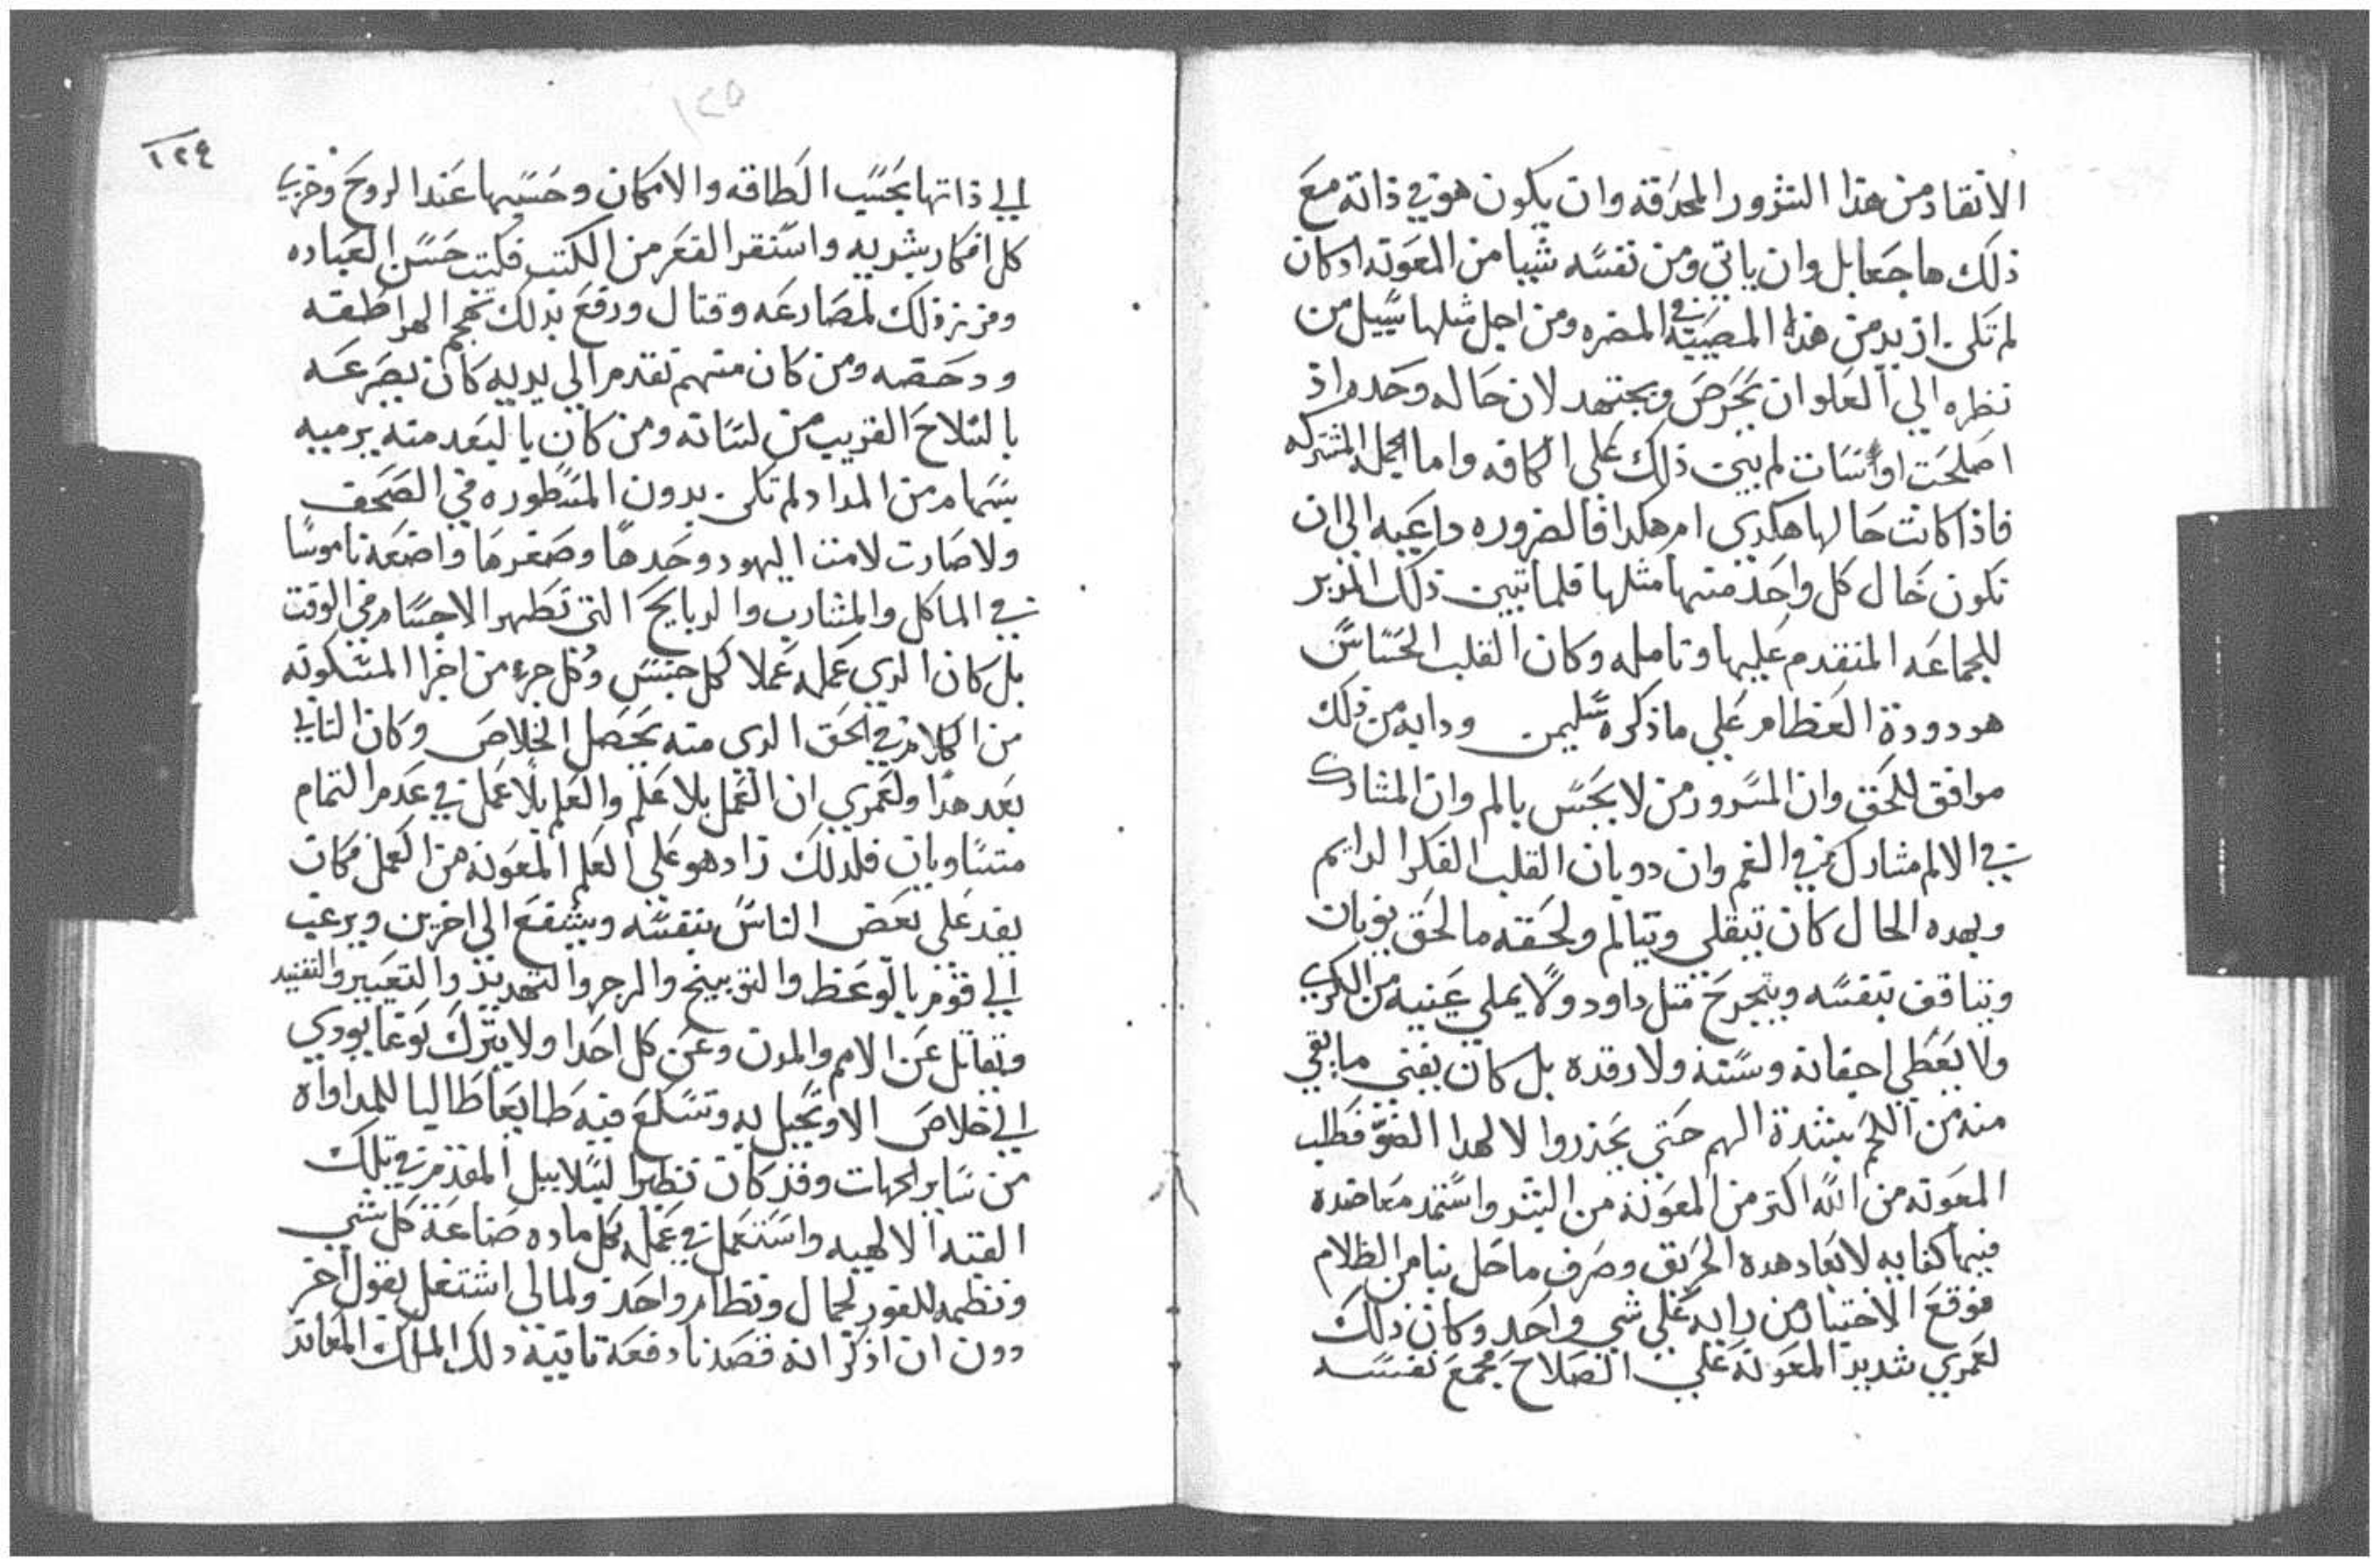 الانقاد من هذا الشرور المحرقه وان يكون هو في ذاته مع
ذلك هاجعا بل وان ياتي ومن نفسه شيا من المعونه اد كان
لم تكن ازيد من هذه المصيبه في المضره ومن اجل مثلها سبيل من
نظره الي العلو ان يحرص ويجتهد لان حاله وحده اذ
اصلحت او اسات لم يبين ذلك على الكافه واما الجمله المشتركه
فاذا كانت حالها هكدى ام هكدا فالضروره داعيه الى ان
تكون حال كل واحد منها مثلها فلما تبين ذلك المدبر
للجماعه المتقدم عليها وتامله وكان القلب الحساس
هو دودة العظام علي ما ذكره سليمن ودايه من ذلك
موافق للحق وان المسرور من لا يحس بالم وان المشارك
في الالم مشارك في الغم وان دوبان القلب الفكر الدايم
وبهده الحال كان يتقلى ويتالم ولحقه ما لحق يونان
بنفسه ويتجرح متل داود ولا يملي عينيه من الكرى
ولا يعطي اجفانه وسنه ولا رقده بل كان يفني ما بقي
منه من اللحم بشدة الهم حتى يحذروا لا لهدا الضو فطلب
المعونه من الله اكتر من المعونه من البشر واستمد معاضده
فيها كفايه لابعاد هده الحريق وصرف ما حل بنا من الظلام
فوقع الاختيار من رايه علي شي واحد وكان ذلك
لعمري شديد المعونه علي الصلاح فجمع نفسه
١٢٥
١٢٤
الي ذاتها بحسب الطاقه والامكان وحسبها عند الروح وضرب
كل افكار بشريه واستقر القعر من الكتب فكتب حسن العباده
وفرز ذلك لمصارعه وقتال ودفع بدلك تهجم الهراطقه
ودحضه ومن كان منهم تقدم الي يديه كان يصرعه
بالسلاح القريب من لسانه ومن كان بالبعد منه يرميه
بسهام من المداد ولم تكن بدون المسطوره في الصحف
ولا صارت لامت اليهود وحدها وصغرها واضعه ناموسا
في الماكل والمشارب والدبايح التي تطهر الاجسام في الوقت
بل كان الدي عمله عملا كل جنس وكل جزء من اجزا المسكونه
من الكلام في الحق الدي منه يحصل الخلاص وكان التاني
بعد هدا ولعمري ان العمل بلا علم والعلم بلا عمل في عدم التمام
متساويان فلدلك زاد هو على العلم المعونه من العمل فكان
يفد على بعض الناس بنفسه ويشفع الى اخرين ويرغب
الي قوم بالوعظ والتوبيخ والزجر والتهديد والتعيير والتفنيد
ويقاتل عن الامم والمدن وعن كل احدا ولا يترك نوعا يودي
الي خلاص الا وتحيل به وتسكع فيه طايعا طالبا للمداواه
من ساير الجهات وقد كان نظيرا لبسلاييل المقدم في تلك
القبه الالهيه واستعمل في عمله كل ماده صناعة كل شي
ونظمه للفور لجمال ونظام واحد ولمالي اشتغل بقول اخر
دون ان اذكر انه قصدنا دفعة تانية دلك الملك المعاند